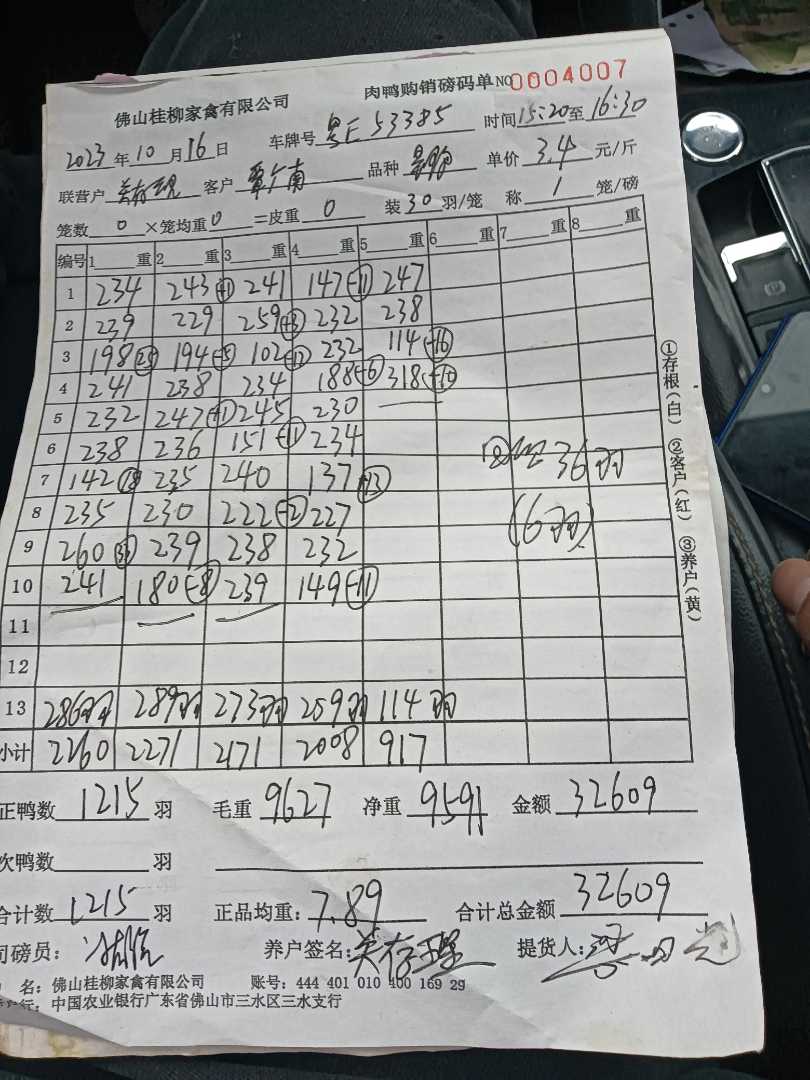 肉鸭购销磅码单 NO 0004007
佛山桂柳家禽有限公司
2023年10月16日 车牌号 粤E53385 时间 15:20 至 16:30
联营户 客户 覃广南 品种 单价 3.4 元/斤
笼数 0 ×笼均重 0 =皮重 0 装 30 羽/笼 称 1 笼/磅
编号 1 重 2 重 3 重 4 重 5 重 6 重 7 重 8 重
1 234 243 241 147 -11 247
2 239 229 259 +3 232 238
3 198 194 -5 102 -12 232 114 -16
4 241 238 234 188 -6 318 -10
5 232 247 +1 245 230
6 238 236 151 -11 234
7 142 18 235 240 137 -12
8 235 230 222 -2 227
9 260 239 238 232
10 241 180 -8 239 149 -11
11
12
13 286羽 289羽 273羽 259羽 114羽
小计 2260 2271 2171 2008 917
36羽
(6羽)
①存根(白) ②客户(红) ③养户(黄)
正鸭数 1215 羽 毛重 9627 净重 9591 金额 32609
次鸭数 羽
合计数 1215 羽 正品均重: 7.89 合计总金额 32609
司磅员: 养户签名: 提货人:
名: 佛山桂柳家禽有限公司 账号: 444 401 010 400 169 29
行: 中国农业银行广东省佛山市三水区三水支行